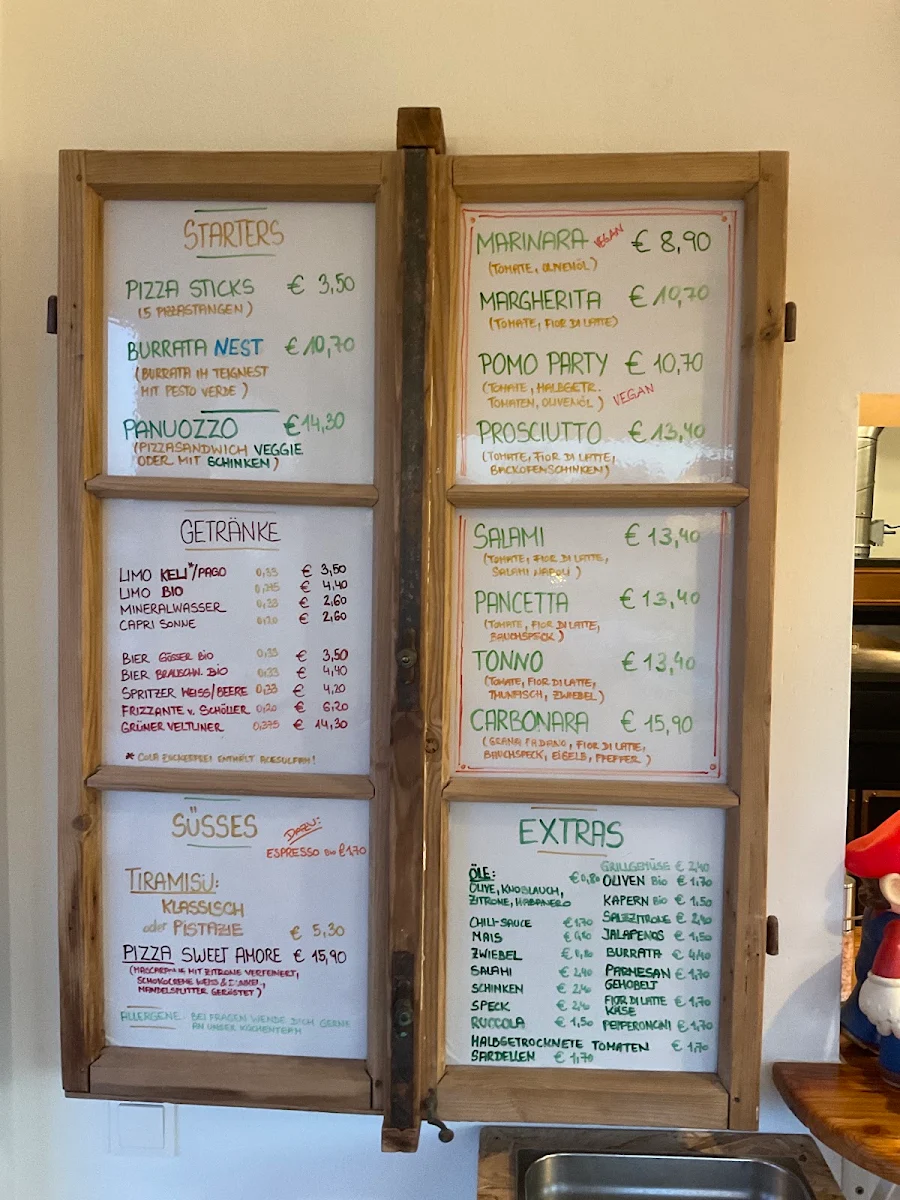 STARTERS
PIZZA STICKS € 3,50
(5 PIZZASTANGEN)
BURRATA NEST € 10,70
(BURRATA IM TEIGNEST
MIT PESTO VERDE)
PANUOZZO €14,30
(PIZZASANDWICH VEGGIE
ODER MIT SCHINKEN)
GETRÄNKE
LIMO KELI*/PAGO 0,33 € 3,50
LIMO BIO € 4,40
MINERALWASSER 0,33 € 2,60
CAPRI SONNE 0,20 € 2,60
BIER GÖSSER BIO 0,33 € 3,50
BIER BRAUSCHN. BIO 0,33 € 4,40
SPRITZER WEISS/BEERE 0,33 € 4,20
FRIZZANTE v. SCHÖLLER 0,20 € 6,20
GRÜNER VELTLINER 0,375 € 14,30
* COLA ZUCKERFREI ENTHÄLT ACESULFAM!
SÜSSES
DAZU:
ESPRESSO BIO €1,70
TIRAMISU:
KLASSISCH
oder PISTAZIE € 5,30
PIZZA SWEET AMORE € 15,90
(MASCARPONE MIT ZITRONE VERFEINERT,
SCHOKOCREME WEISS & DUNKEL,
MANDELSPLITTER GERÖSTET)
ALLERGENE: BEI FRAGEN WENDE DICH GERNE
AN UNSER KÜCHENTEAM
MARINARA VEGAN € 8,90
(TOMATE, OLIVENÖL)
MARGHERITA € 10,70
(TOMATE, FIOR DI LATTE)
POMO PARTY € 10,70
(TOMATE, HALBGETR.
TOMATEN, OLIVENÖL) VEGAN
PROSCIUTTO € 13,40
(TOMATE, FIOR DI LATTE,
BACKOFENSCHINKEN)
SALAMI € 13,40
(TOMATE, FIOR DI LATTE,
SALAMI NAPOLI)
PANCETTA € 13,40
(TOMATE, FIOR DI LATTE,
BAUCHSPECK)
TONNO € 13,40
(TOMATE, FIOR DI LATTE,
THUNFISCH, ZWIEBEL)
CARBONARA € 15,90
(GRANA PADANO, FIOR DI LATTE,
BAUCHSPECK, EIGELB, PFEFFER)
EXTRAS
ÖLE: €0,80
OLIVE, KNOBLAUCH,
ZITRONE, HABANERO
CHILI-SAUCE €1,70
MAIS €
ZWIEBEL € 0,80
SALAMI € 2,40
SCHINKEN € 2,40
SPECK € 2,40
RUCCOLA € 1,50
GRILLGEMÜSE € 2,40
OLIVEN BIO € 1,70
KAPERN BIO € 1,50
SALZZITRONE € 2,40
JALAPENOS € 1,50
BURRATA € 4,40
PARMESAN € 1,70
GEHOBELT
FIOR DI LATTE € 1,70
KÄSE
PEPPERONCINI € 1,70
HALBGETROCKNETE TOMATEN € 1,70
SARDELLEN € 1,70